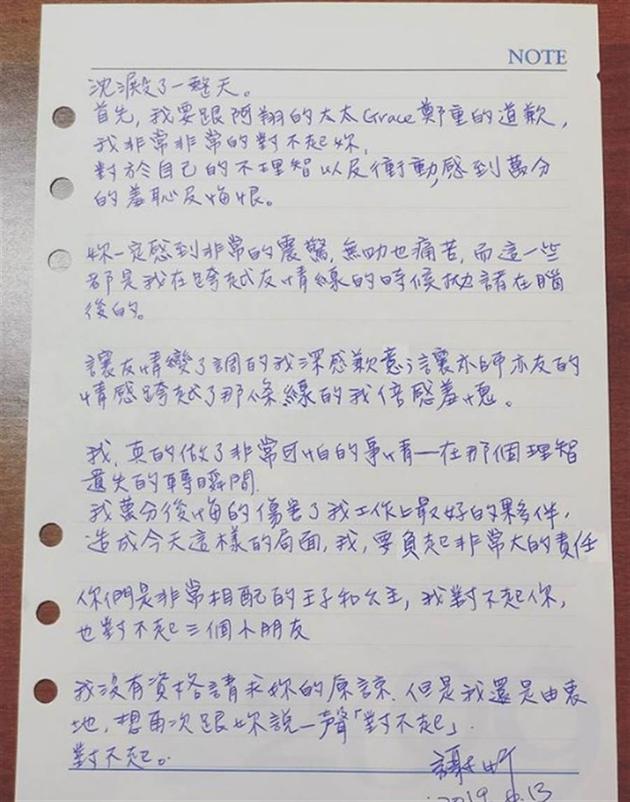 NOTE
沈澱了一整天。
首先,我要跟阿翔的太太Grace鄭重的道歉,
我非常非常的對不起妳,
對於自己的不理智以及衝動,感到萬分
的羞恥及悔恨。
妳一定感到非常的震驚,無助也痛苦,而這一些
都是我在跨越友情線的時候拋諸在腦
後的。
讓友情變了調的我深感歉意;讓亦師亦友的
情感跨越了那條線的我倍感羞愧。
我,真的做了非常可怕的事情—在那個理智
遺失的轉瞬間.
我萬分後悔的傷害了我工作上最好的夥伴,
造成今天這樣的局面,我,要負起非常大的責任
你們是非常相配的王子和公主,我對不起你,
也對不起三個小朋友
我沒有資格請求妳的原諒.但是我還是由衷
地,想再次跟妳說一聲「對不起」.
對不起。
謝忻
2019.